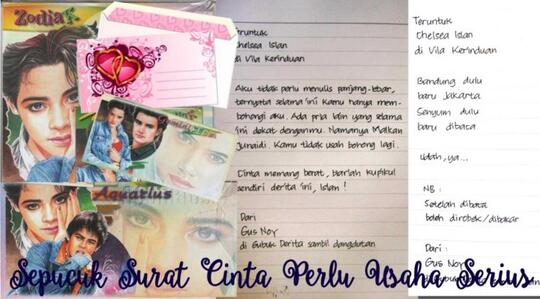 Zodia
Gemini
Aquarius
Teruntuk
Chelsea Islan
di Vila Kerinduan
Aku tidak perlu menulis panjang-lebar,
ternyata selama ini kamu hanya mem-
bohongi aku. Ada pria lain yang selama
ini dekat denganmu. Namanya Malkan
Junaidi. Kamu tidak usah bohong lagi.
Cinta memang berat, biarlah kupikul
sendiri derita ini, Islan!
Dari
Gus Noy
di Gubuk Derita sambil dangdutan
Teruntuk
Chelsea Islan
di Vila Kerinduan
Bandung dulu
baru Jakarta
Senyum dulu
baru dibaca
Udah, ya...
NB :
Setelah dibaca
boleh dirobek/dibakar
Dari :
Gus Noy
Sepucuk Surat Cinta Perlu Usaha Serius